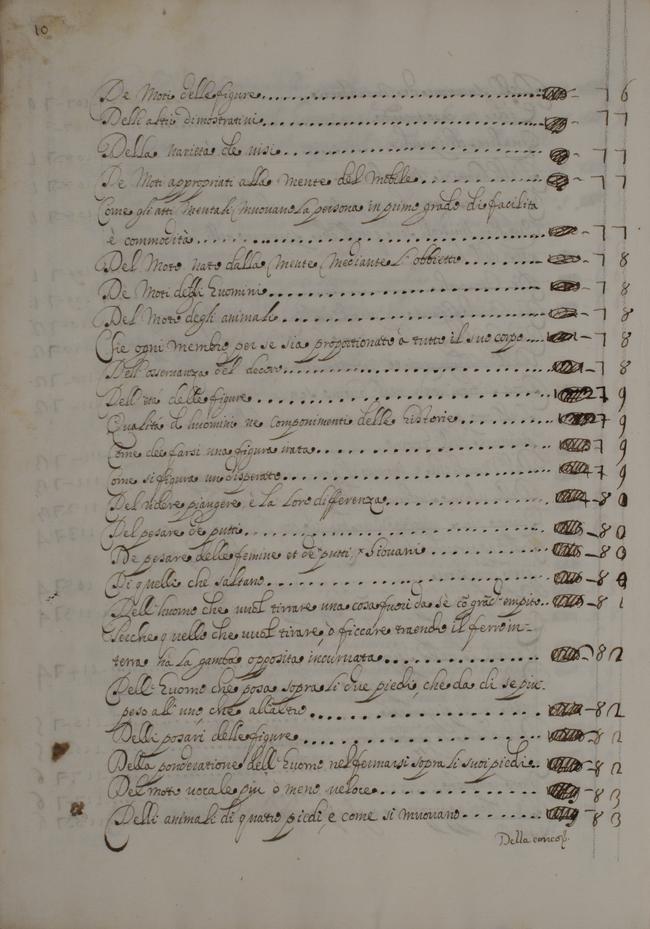 10
De Moti delle figure - 76
Delli atti dimostrativi - 77
Della varieta de visi - 77
De Moti appropriati alla Mente del Mobile - 77
Come gli atti Mentali Muovano la persona in primo grado di facilita
è commodità - 77
Del Moto nato dalla Mente Mediante l'obbietto - 78
De Moti dell'Huomini - 78
Del Moto degli animali - 78
Che ogni Membro per se sia proportionato à tutto il suo corpo - 78
Dell'osservanza del decoro - 78
Dell' età delle figure 79
Qualità d huomini ne componimenti delle historie 79
Come dee farsi una figura 79
Come si figura un disperato 79
Del ridere piangere, e la loro differenza - 80
Del posare de putti - 80
De posare delle femine et de putti, Giovani - 80
Di quelli che saltano - 80
Dell'huomo che vuol tirrare una cosa fuori da sè cõ grãd' empito - 81
Perche quello che vuol tirare, ò ficcare traendo il ferro in-
terra ha la gamba opposita incurvata - 82
Dell'Huomo che posa sopra li due piedi, che da di se piu
peso all'uno, che all'altro - 82
Delli posari delle figure - 82
Della ponderatione dell'Huomo nel fermarsi sopra li suoi piedi - 82
Del moto piu o meno veloce - 83
Delli animali di quatro piedi, e come si muovano - 83
Della